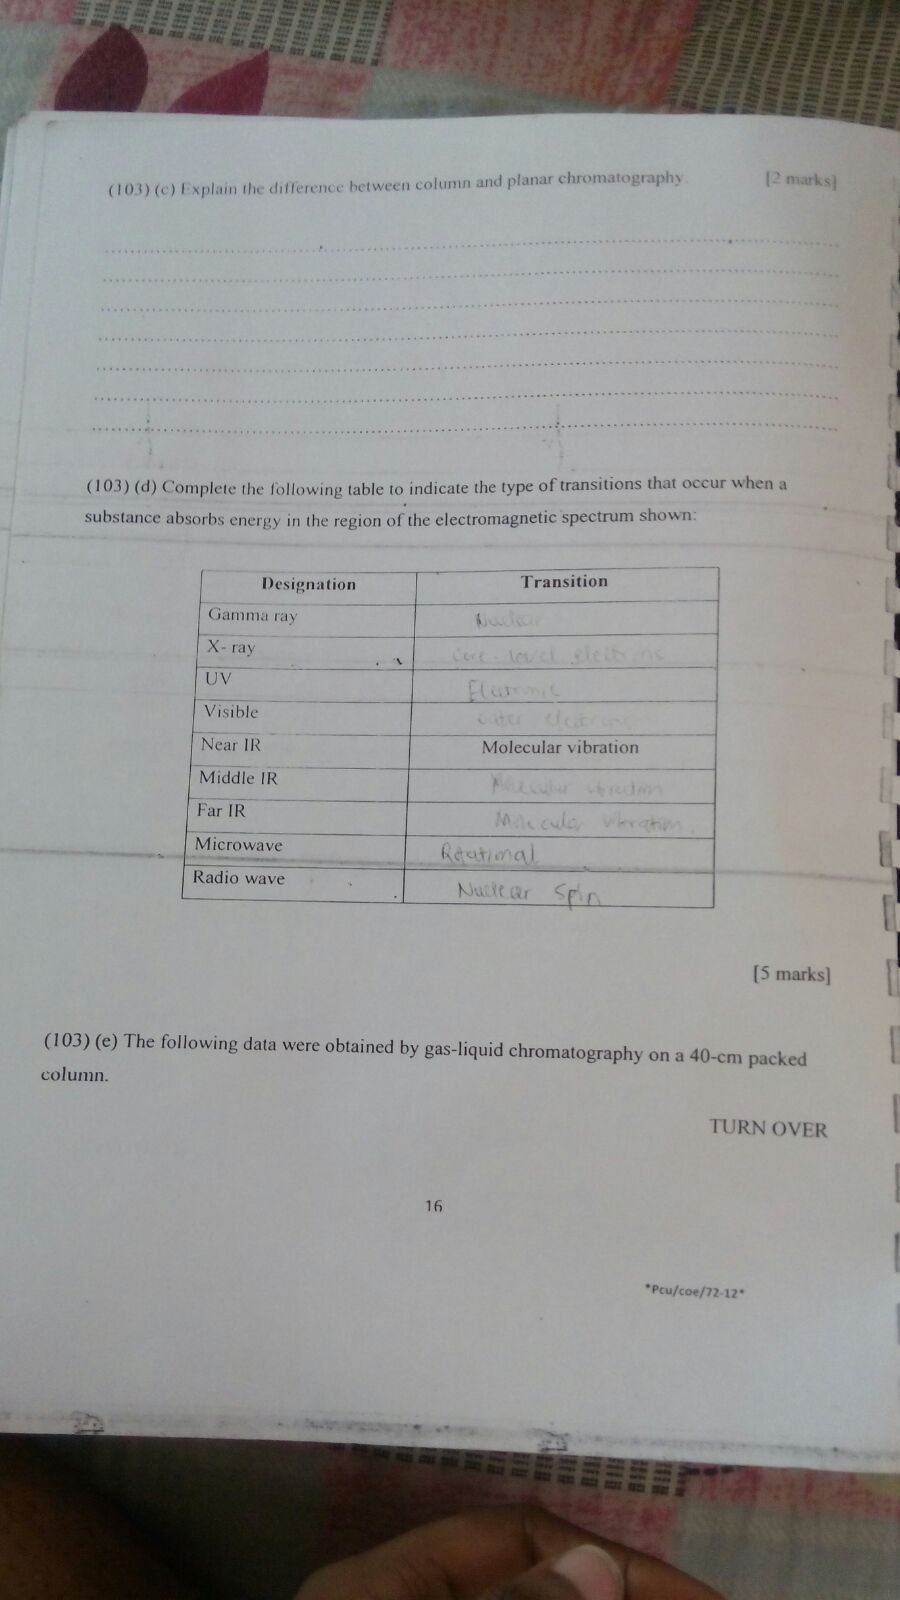 (103) (c) Explain the difference between column and planar chromatography. [2 marks]
(103) (d) Complete the following table to indicate the type of transitions that occur when a
substance absorbs energy in the region of the electromagnetic spectrum shown:
Designation Transition
Gamma ray Nuclear
X- ray Core-level electrons
UV Electronic
Visible outer electrons
Near IR Molecular vibration
Middle IR Molecular vibration
Far IR Molecular vibration.
Microwave Rotational
Radio wave Nuclear Spin
[5 marks]
(103) (e) The following data were obtained by gas-liquid chromatography on a 40-cm packed
column.
TURN OVER
16
*Pcu/coe/72-12*